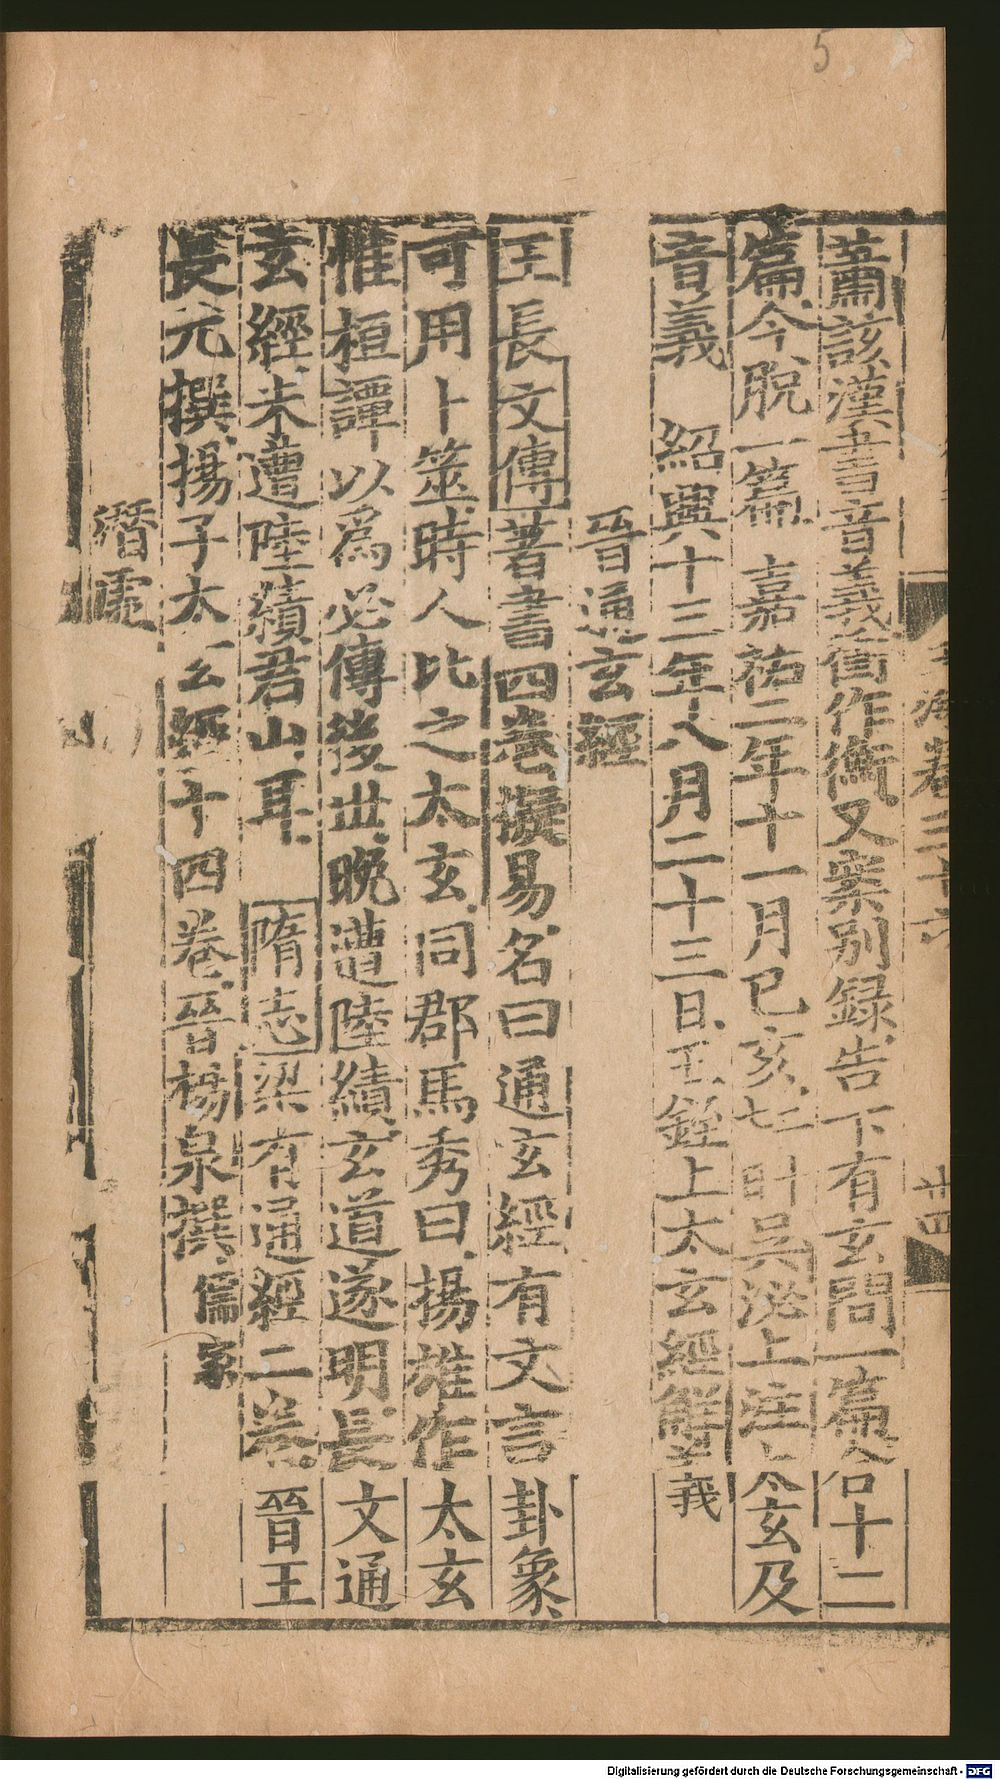 5
玉海卷三十六
廿四
蕭該漢書音義𡊮作衝又案别録告下有玄問一篇合十二
篇今脱一篇 嘉祐二年十一月己亥 吴祕上注太玄及
音義 紹興十三年八月二十三日王銍上太玄經解義
晉通玄經
王長文傳著書四卷擬易名曰通玄經有文言卦象
可用卜筮時人比之太玄同郡馬秀曰揚雄作太玄
惟桓譚以爲必傳後世晚遭陸績玄道遂明長文通
玄經未遭陸績君山耳 隋志梁有通經二卷晉王
長元撰揚子太玄經十四卷晉楊泉撰儒家
潛虛
Digitalisierung gefördert durch die Deutsche Forschungsgemeinschaft - DFG